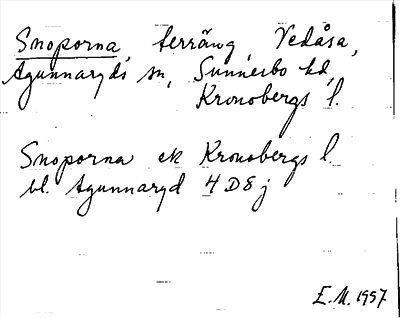 Snoporna, terräng Vedåsa,
Agunnaryds sn, Sunnerbo hd,
Kronobergs l.
Snoporna ek Kronobergs l.
bl. Agunnaryd 4D8j
E.M. 1957